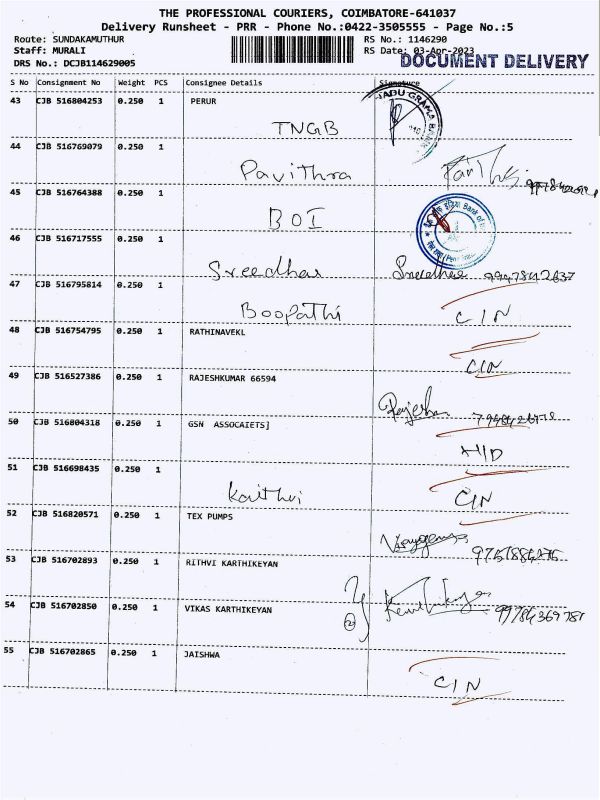 THE PROFESSIONAL COURIERS, COIMBATORE-641037
Delivery Runsheet - PRR - Phone No.:0422-3505555 - Page No.:5
Route: SUNDAKAMUTHUR RS No.: 1146290
Staff: MURALI RS Date: 03-Apr-2023
DOCUMENT DELIVERY
DRS No.: DCJB114629005
S No Consignment No Weight PCS Consignee Details Signature
43 CJB 516804253 0.250 1 PERUR
TNGB
44 CJB 516769079 0.250 1
Pavithra
45 CJB 516764388 0.250 1
BOI
46 CJB 516717555 0.250 1
Sreedhar Sreedhar
47 CJB 516795814 0.250 1
Boopathi CIN
48 CJB 516754795 0.250 1 RATHINAVEKL
CIN
49 CJB 516527386 0.250 1 RAJESHKUMAR 66594
50 CJB 516804318 0.250 1 GSN ASSOCAIETS]
51 CJB 516698435 0.250 1
CIN
52 CJB 516820571 0.250 1 TEX PUMPS
53 CJB 516702893 0.250 1 RITHVI KARTHIKEYAN
54 CJB 516702850 0.250 1 VIKAS KARTHIKEYAN
55 CJB 516702865 0.250 1 JAISHWA
CIN